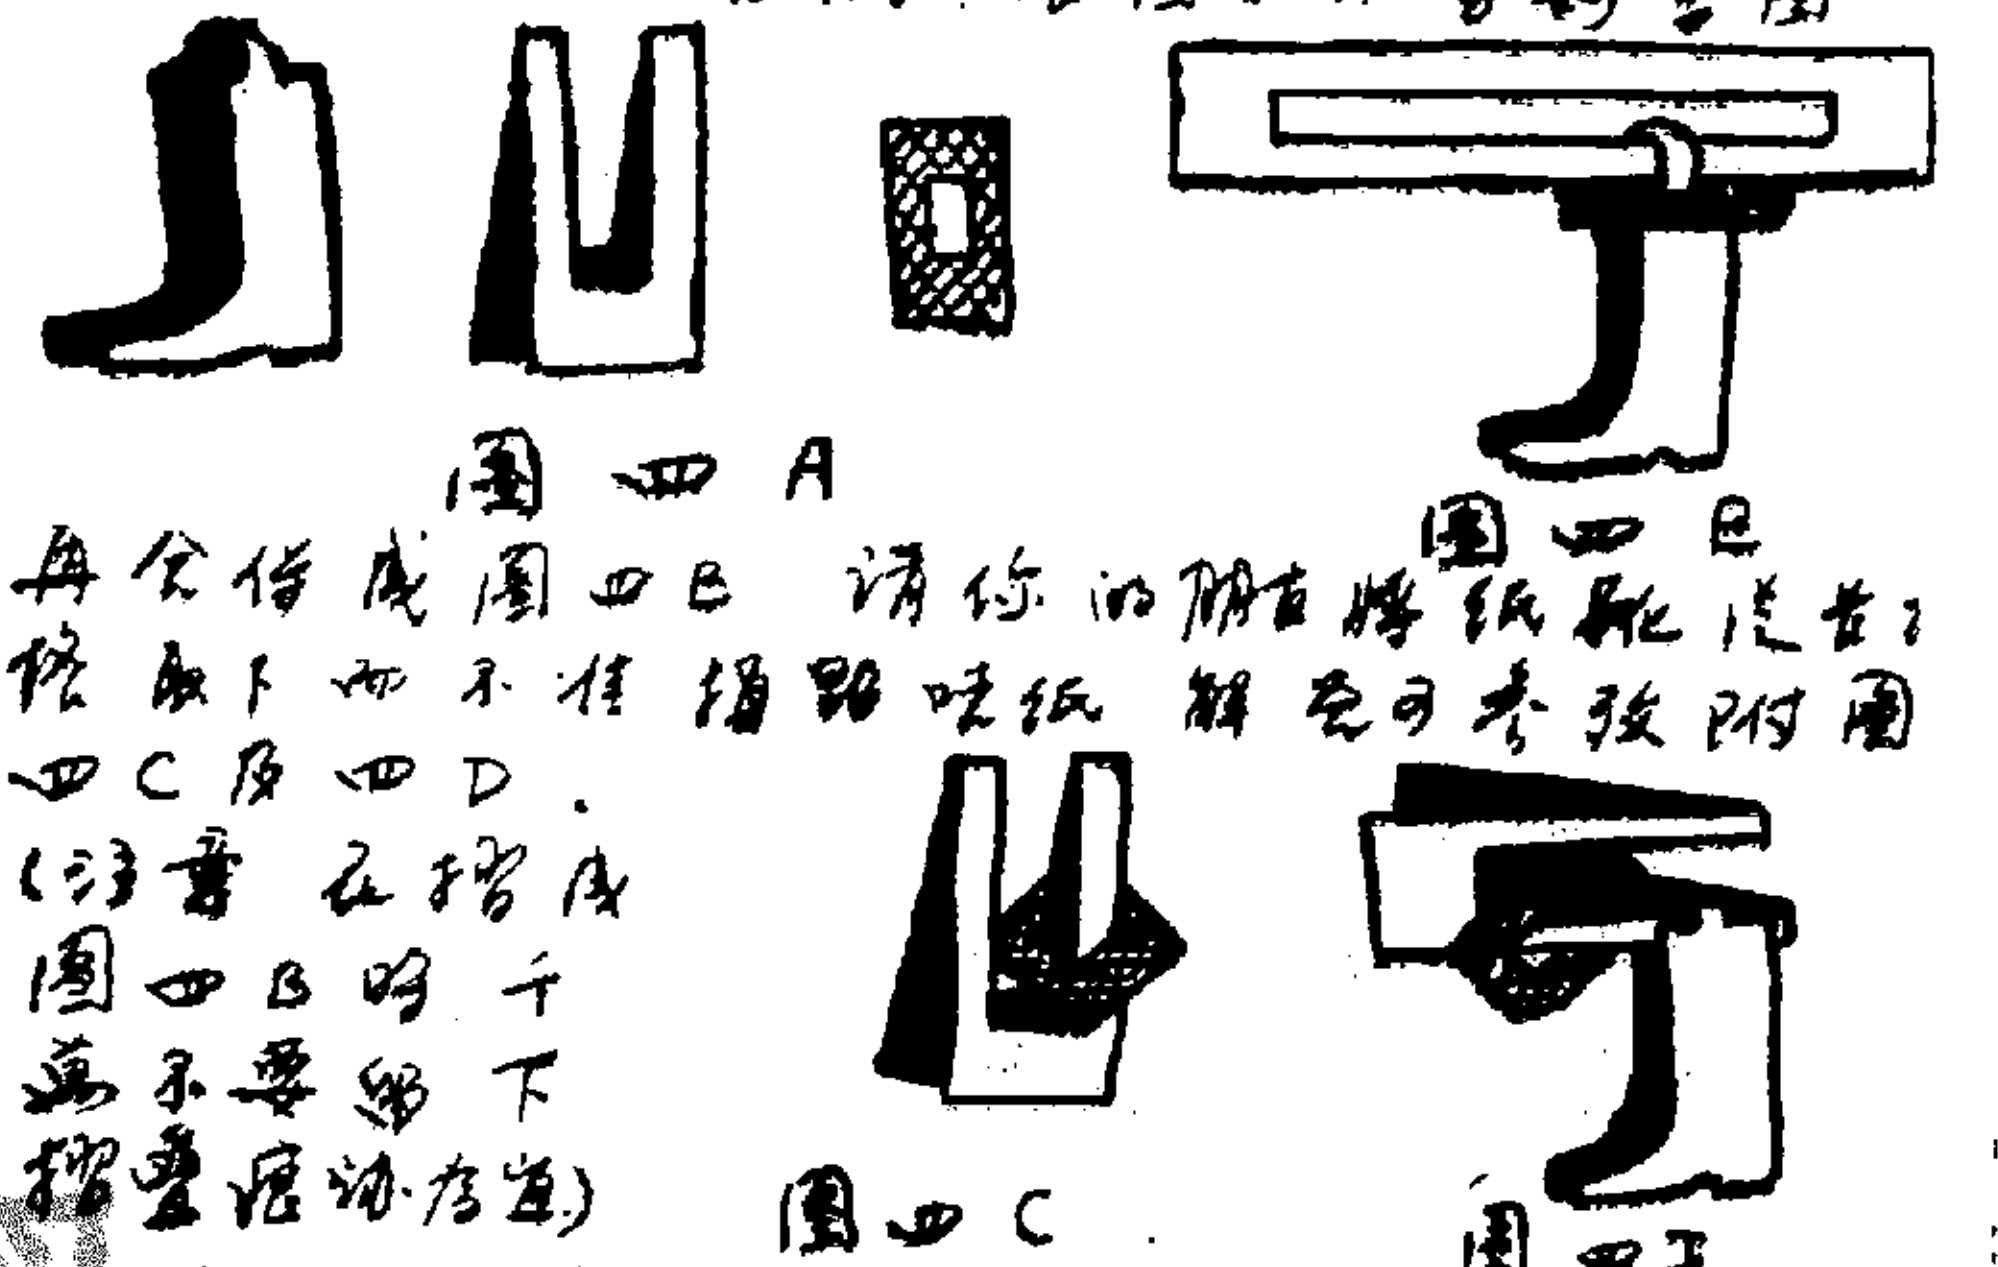 圖四A
圖四B
再合併成圖四B 請你的朋友將紙靴從其
取下而不准損毀紙 解答可參攷附圖
四C及四D.
(注意 在摺成
圖四B時千
萬不要留下
摺疊痕跡為道)
圖四C
圖四